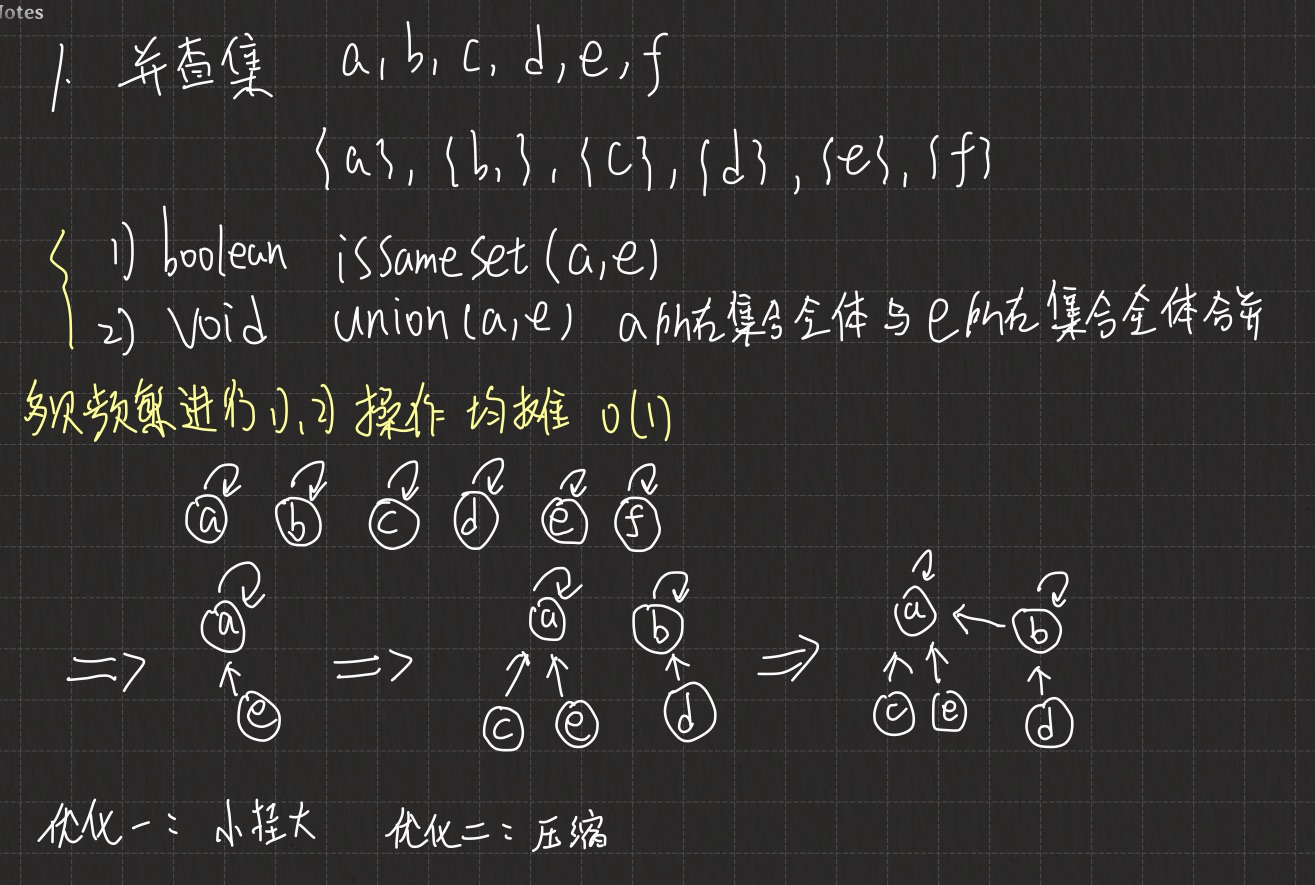 Notes
1. 并查集 a, b, c, d, e, f
{a}, {b,}, {c}, {d}, {e}, {f}
1) boolean issameset(a,e)
2) void union(a,e) a所在集合全体与e所在集合全体合并
频繁进行1),2)操作 均摊 O(1)
a b c d e f
a a b a b
=> e => c e d => c e d
优化一: 小挂大 优化二: 压缩